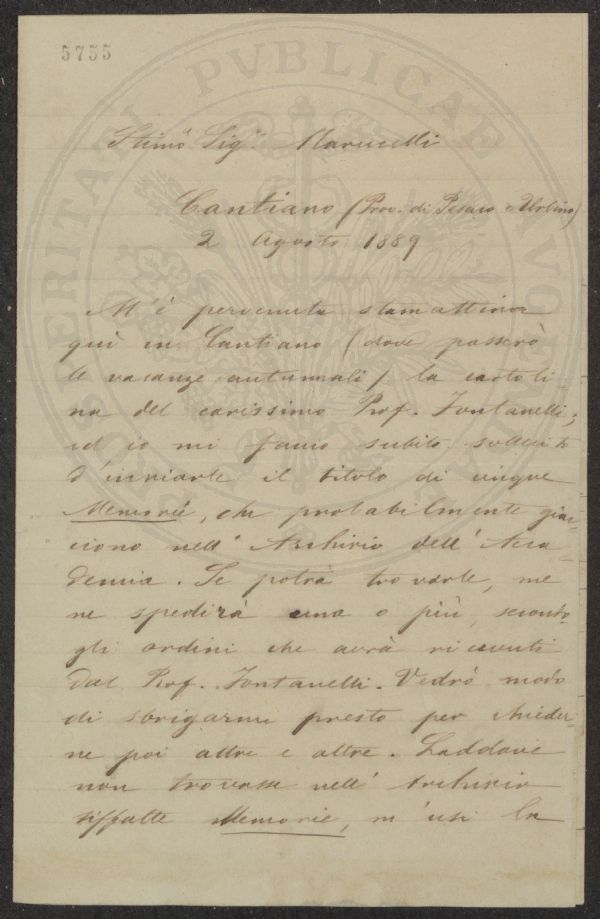 5755
PVBLICAE
Stimo Sigr Marucelli
Cantiano (Prov. di Pesaro e Urbino)
2 Agosto 1889
M'è pervenuta stamattina
quì in Cantiano (dove passerò
le vacanze autunnali) la cartoli-
na del carissimo Prof. Fontanelli;
ed io mi faccio subito sollecito
d'inviarle il titolo di cinque
Memorie, che probabilmente giac-
ciono nell' Archivio dell' Acca-
demia. Se potrà trovarle, me
ne spedirà una o più, secondo
gli ordini che avrà ricevuti
dal Prof. Fontanelli. Vedrò modo
di sbrigarmi presto per chieder-
ne poi altre e altre. Laddove
non trovasse nell' Archivio
siffatte Memorie, m'usi la